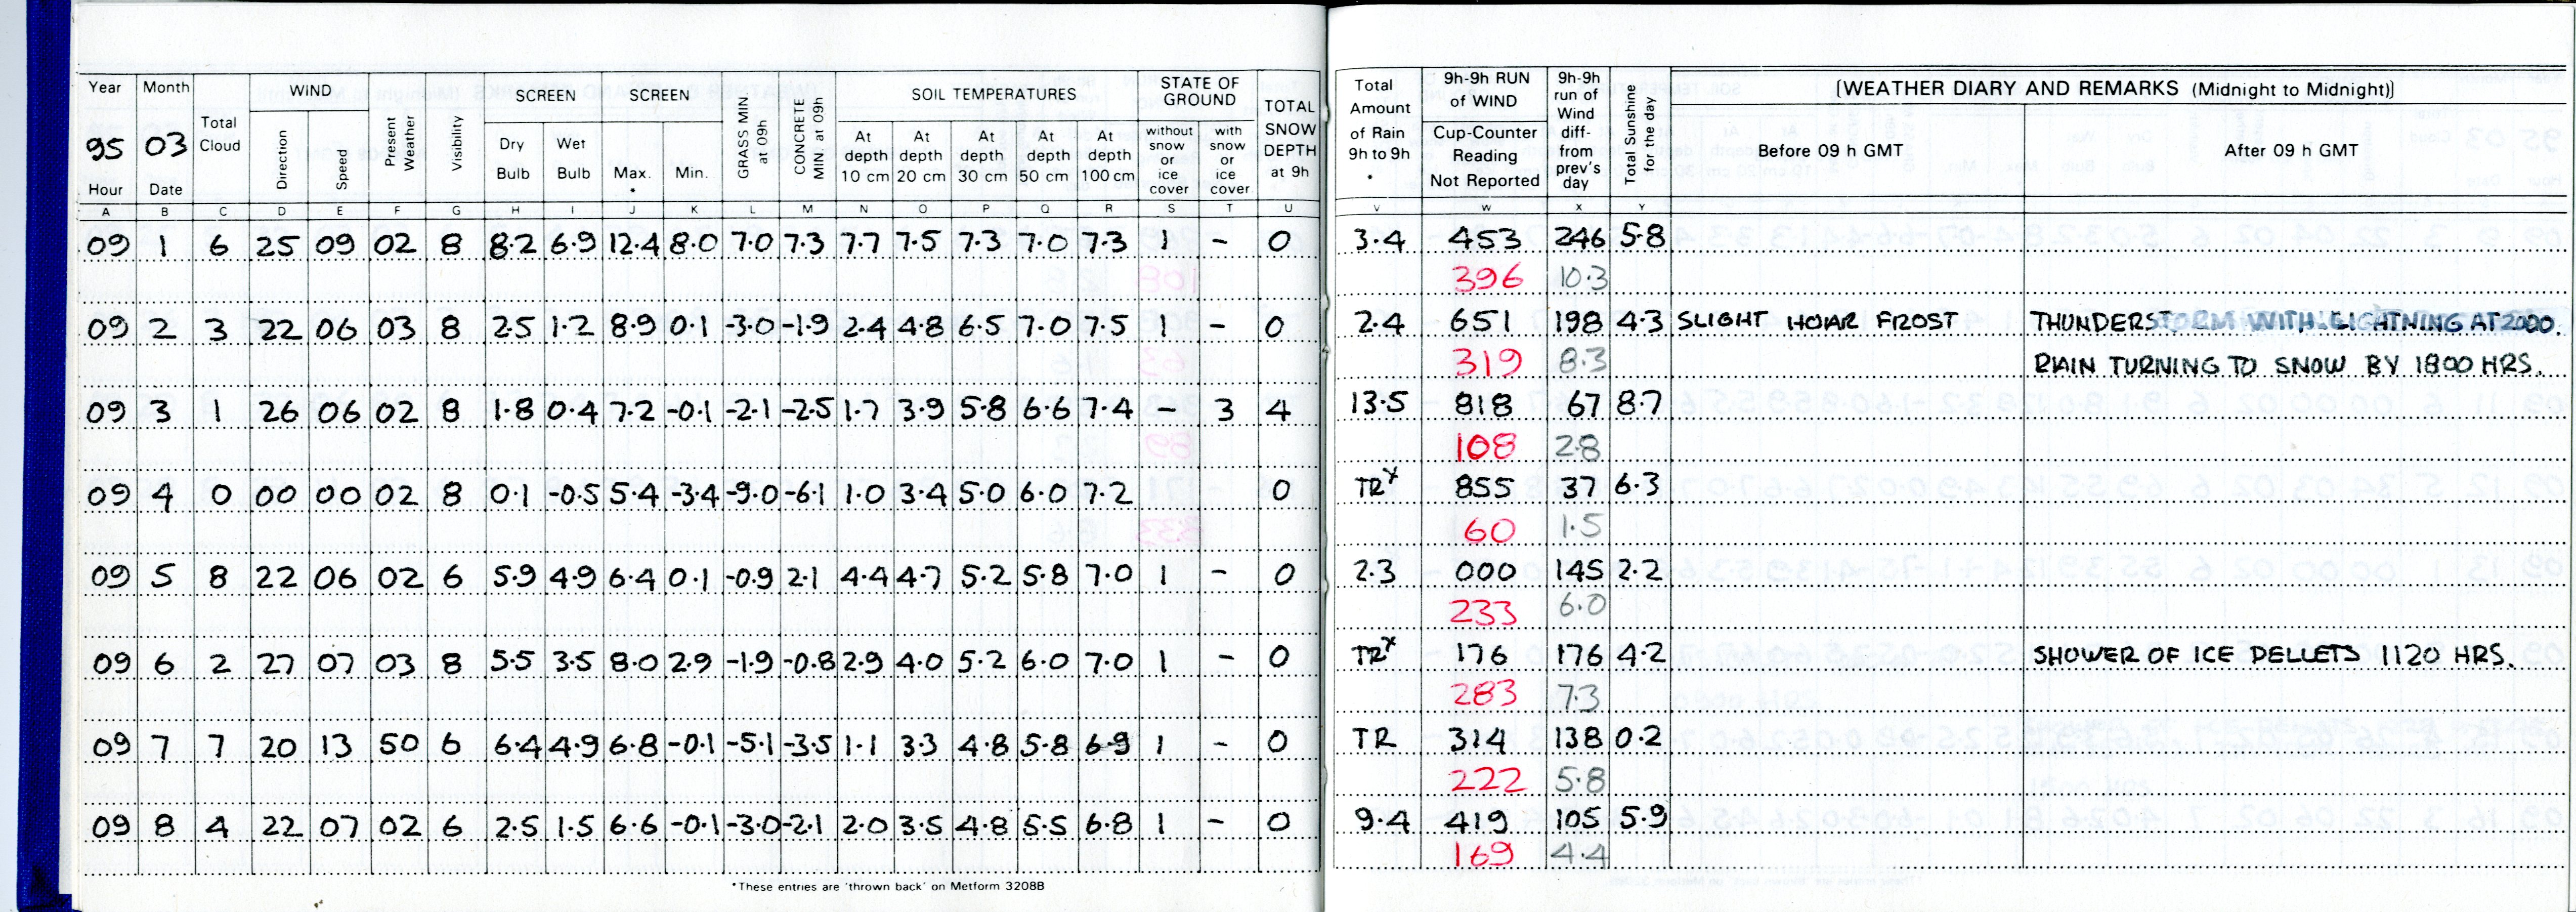 Year Month Total Cloud WIND Present Weather Visibility SCREEN SCREEN GRASS MIN at 09h CONCRETE MIN at 09h SOIL TEMPERATURES STATE OF GROUND TOTAL SNOW DEPTH at 9h Total Amount of Rain 9h to 9h * 9h-9h RUN of WIND 9h-9h run of Wind diff- from prev's day Total Sunshine for the day (WEATHER DIARY AND REMARKS (Midnight to Midnight))
95 03 Direction Speed Dry Bulb Wet Bulb Max. * Min. At depth 10 cm At depth 20 cm At depth 30 cm At depth 50 cm At depth 100 cm without snow or ice cover with snow or ice cover Cup-Counter Reading Not Reported Before 09 h GMT After 09 h GMT
Hour Date
A B C D E F G H I J K L M N O P Q R S T U V W X Y
09 1 6 25 09 02 8 8.2 6.9 12.4 8.0 7.0 7.3 7.7 7.5 7.3 7.0 7.3 1 - 0 3.4 453 246 5.8
396 10.3
09 2 3 22 06 03 8 2.5 1.2 8.9 0.1 -3.0 -1.9 2.4 4.8 6.5 7.0 7.5 1 - 0 2.4 651 198 4.3 SLIGHT HOAR FROST THUNDERSTORM WITH LIGHTNING AT 2000.
319 8.3 RAIN TURNING TO SNOW BY 1800 HRS.
09 3 1 26 06 02 8 1.8 0.4 7.2 -0.1 -2.1 -2.5 1.7 3.9 5.8 6.6 7.4 - 3 4 13.5 818 67 8.7
108 2.8
09 4 0 00 00 02 8 0.1 -0.5 5.4 -3.4 -9.0 -6.1 1.0 3.4 5.0 6.0 7.2 0 TR* 855 37 6.3
60 1.5
09 5 8 22 06 02 6 5.9 4.9 6.4 0.1 -0.9 2.1 4.4 4.7 5.2 5.8 7.0 1 - 0 2.3 000 145 2.2
233 6.0
09 6 2 27 07 03 8 5.5 3.5 8.0 2.9 -1.9 -0.8 2.9 4.0 5.2 6.0 7.0 1 - 0 TR* 176 176 4.2 SHOWER OF ICE PELLETS 1120 HRS.
283 7.3
09 7 7 20 13 50 6 6.4 4.9 6.8 -0.1 -5.1 -3.5 1.1 3.3 4.8 5.8 6.9 1 - 0 TR 314 138 0.2
222 5.8
09 8 4 22 07 02 6 2.5 1.5 6.6 -0.1 -3.0 -2.1 2.0 3.5 4.8 5.5 6.8 1 - 0 9.4 419 105 5.9
169 4.4
*These entries are 'thrown back' on Metform 3208B